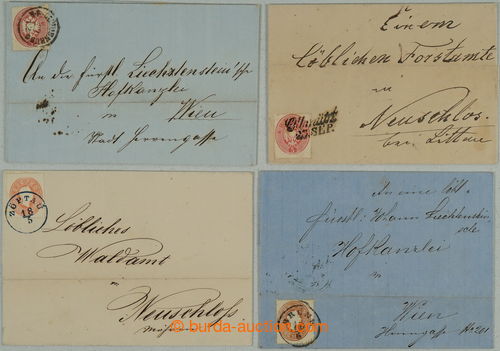 An die fürstl Liechtenstein'sche
Hofkanzlei
in
Wien
Stadt Herrengasse
Einem
Löblichen Forstamte
zu
Neuschlos.
bei Littau
23. SEP.
ZÖPTAU
18
5
Löbliches
Waldamt
in
Neuschloß
An eine löbl.
fürstl. Johann Liechtenstein
sche
Hofkanzlei
in
Wien
Herrngasse No 251
BRÜNN
© burda-auction.com